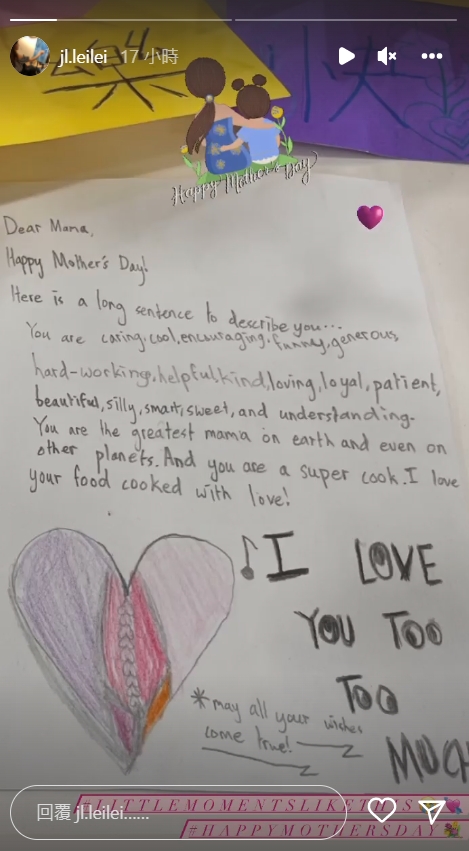 jl.leilei 17 小時
樂 小快
Happy Mother's Day
Dear Mama,
Happy Mother's Day!
Here is a long sentence to describe you...
You are caring, cool, encouraging, funny, generous,
hard-working, helpful, kind, loving, loyal, patient,
beautiful, silly, smart, sweet, and understanding.
You are the greatest mama on earth and even on
other planets. And you are a super cook. I love
your food cooked with love!
I LOVE
YOU TOO
TOO
MUCH
*may all your wishes
come true!
回覆 jl.leilei......
#LITTLEMOMENTSLIKETHIS
#HAPPYMOTHERSDAY